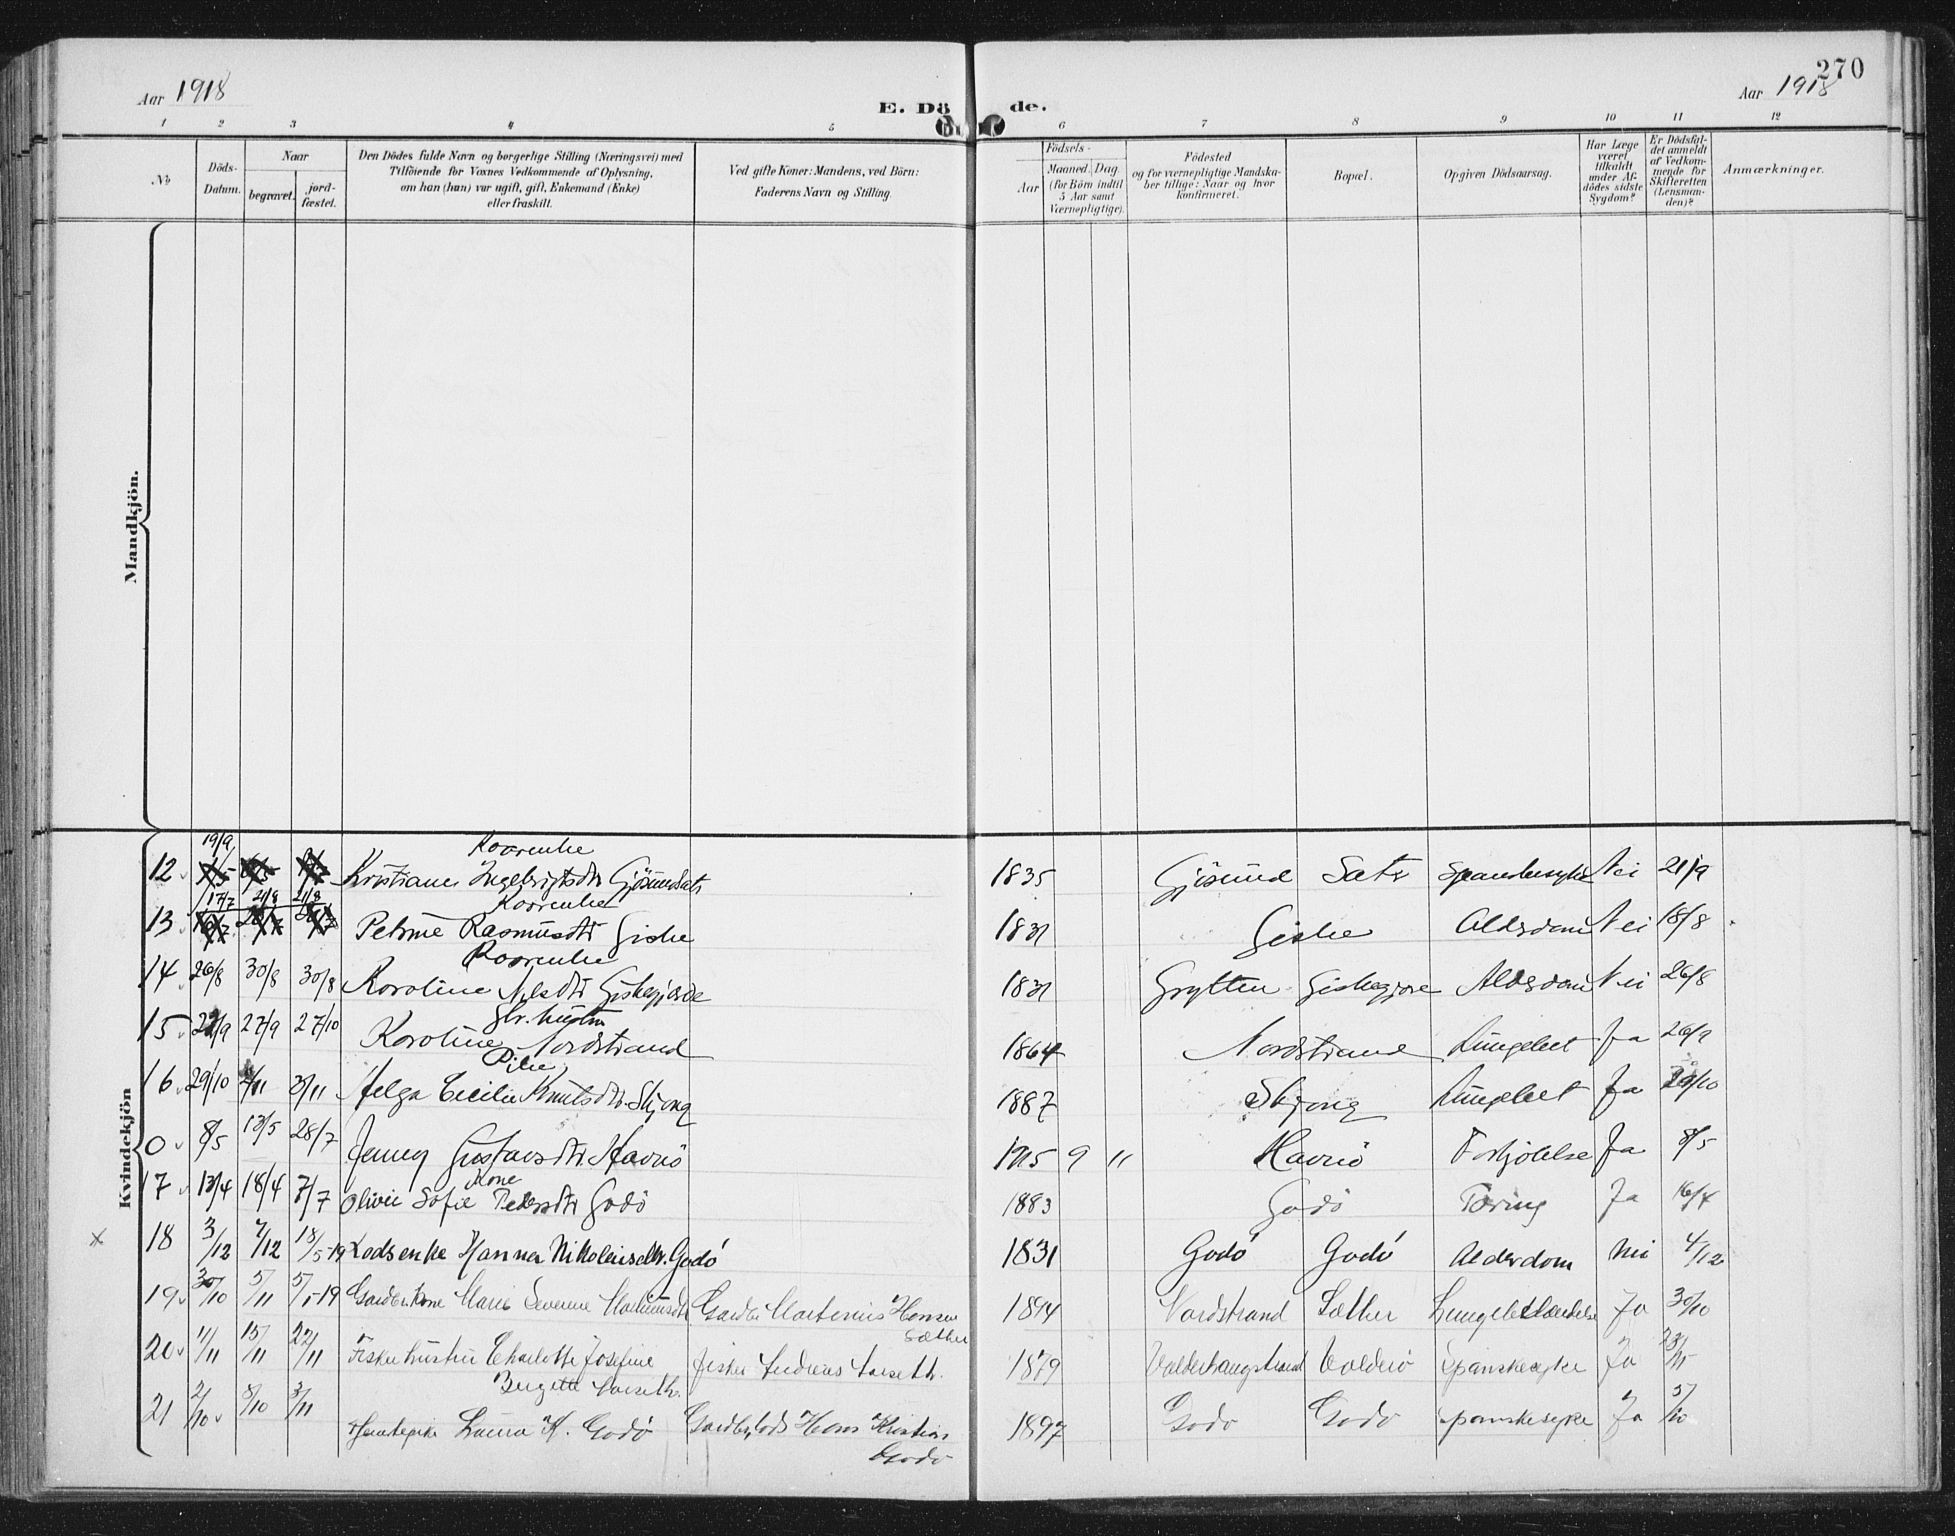 270
Aar 1918
E. Dö de.
Aar 1918
1 2 3 4 5 6 7 8 9 10 11 12
No
Döds-
Datum.
Naar
begravet.
jord-
fæstet.
Den Dödes fulde Navn og borgerlige Stilling (Næringsvei) med
Tilföiende for Voxnes Vedkommende af Oplysning,
om han (hun) var ugift, gift, Enkemand (Enke)
eller fraskilt.
Ved gifte Koner: Mandens, ved Börn:
Faderens Navn og Stilling.
Födsels-
Aar
Maaned. Dag.
(for Börn indtil
5 Aar samt
Værnepligtige).
Födested
og for værnepligtige Mandska-
ber tillige: Naar og hvor
konfirmeret.
Bopæl.
Opgiven Dödsaarsag.
Har Læge
været
tilkaldt
under Af-
dödes sidste
Sygdom?
Er Dödsfal-
det anmeldt
af Vedkom-
mende for
Skifteretten
(Lensman-
den)?
Anmærkninger.
Mandkjön.
Kvindekjön
19/9 Kaarenke
12 Kristiane Ingebrigtsdtr Gjösundsæt 1835 Gjösund Sætr Spanskesyke Nei 21/9
17/7 21/8 21/8 Kaarenke
13 Petrine Rasmusdtr Giske 1831 Giske Alderdom Nei 18/8
Kaarenke
14 26/8 30/8 30/8 Karoline Nilsdtr Giskegjerde 1831 Grytten Giskegjerde Alderdom Nei 26/8
Gbr. hustru
15 27/9 27/10 Karoline Nordstrand 1864 Nordstrand Lungebet Ja 26/9
Pike
16 29/10 3/11 Helga Cecilie Knutsdtr. Skjong 1887 Skjong Lungebet Ja
0 8/5 13/5 28/7 Jenny Gustavsdtr. Havnö 1915 9 " Havnö Forkjölelse Ja 8/5
Kone
17 13/4 18/4 7/7 Olivie Sofie Pedersdtr Godö 1883 Godö Tæring Ja 16/4
x 18 3/12 7/12 18/5-19 Lodsenke Hanna Nikolaisdtr. Godö 1831 Godö Godö Alderdom nei 4/12
19 30/10 5/11 5/1-19 Gardbr. kone Marie Severine Martinusdtr Gardbr Martinus Hansen
Sæther
1894 Nordstrand Sæther Ja 30/10
20 11/11 15/11 22/11 Fisker hustru Charlotte Josefine
Bergitte
Fisker Andreas
1879 Valderhaugstrand Valderö Spanskesyke Ja
21 2/10 8/10 3/11 Laura K. Godö Gardbr, lods Hans Kristian
Godö
1897 Godö Godö Spanskesyke Ja 5/10